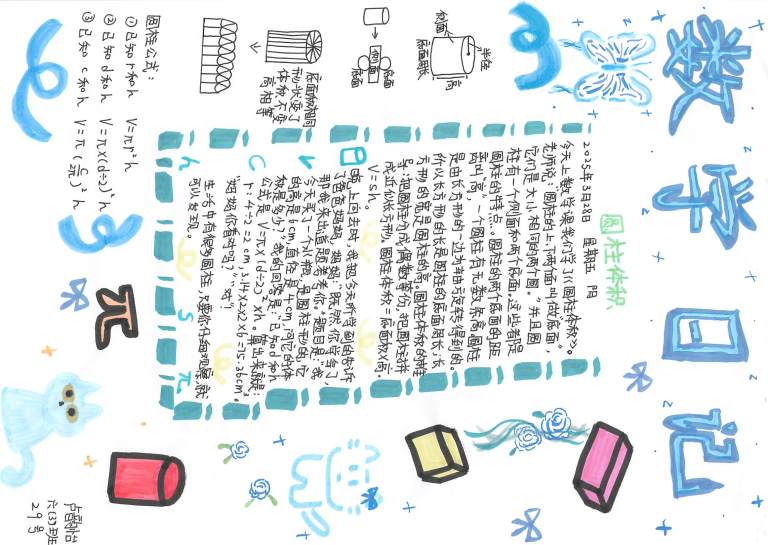 数学日记
圆柱体积
2025年3月28日 星期五 阴
今天上数学课我们学了《圆柱体积》。
老师说：“圆柱的上下两面叫做底面，
它们是大小相同的两个圆。”并且圆
柱有一个侧面和两个底面。这些都是
圆柱的特点。圆柱的两个底面的距
离叫“高”，一个圆柱有无数条高，圆柱
是由长方形的一边为轴旋转得到的。
所以长方形的长是圆柱的底面周长，长
方形的宽就是圆柱的高。圆柱体积的推
导：把圆柱分成偶数等份，把圆柱拼
成近似长方形，圆柱体积=底面积×高。
V=sh。
晚上回去时，我把今天所学到的告诉
了爸爸妈妈，妈妈：“既然你学会了，
那我来出道题考考你。”题目是：“我
今天买了一个水瓶，是圆柱形的，它
的高是6cm，直径是4cm，问它的体
积是多少？”我的回答是：已知d和h
公式是 V=π×(d÷2)²×h。 算出来就
r：4÷2=2cm，3.14×2×2×6=75.36cm³。
“妈妈你看对吗？”“对”
生活中有很多圆柱，只要你仔细观察，就
可以发现。
半径
高
侧面
底面周长
底面
侧面
底面
底面积相同
形状变了
体积不变
高相等
圆柱公式：
①已知r和h V=πr²h
②已知d和h V=π×(d÷2)²h
③已知c和h V=π(c/2π)²h
h
C
V
S
π
π
六(3)班
29号